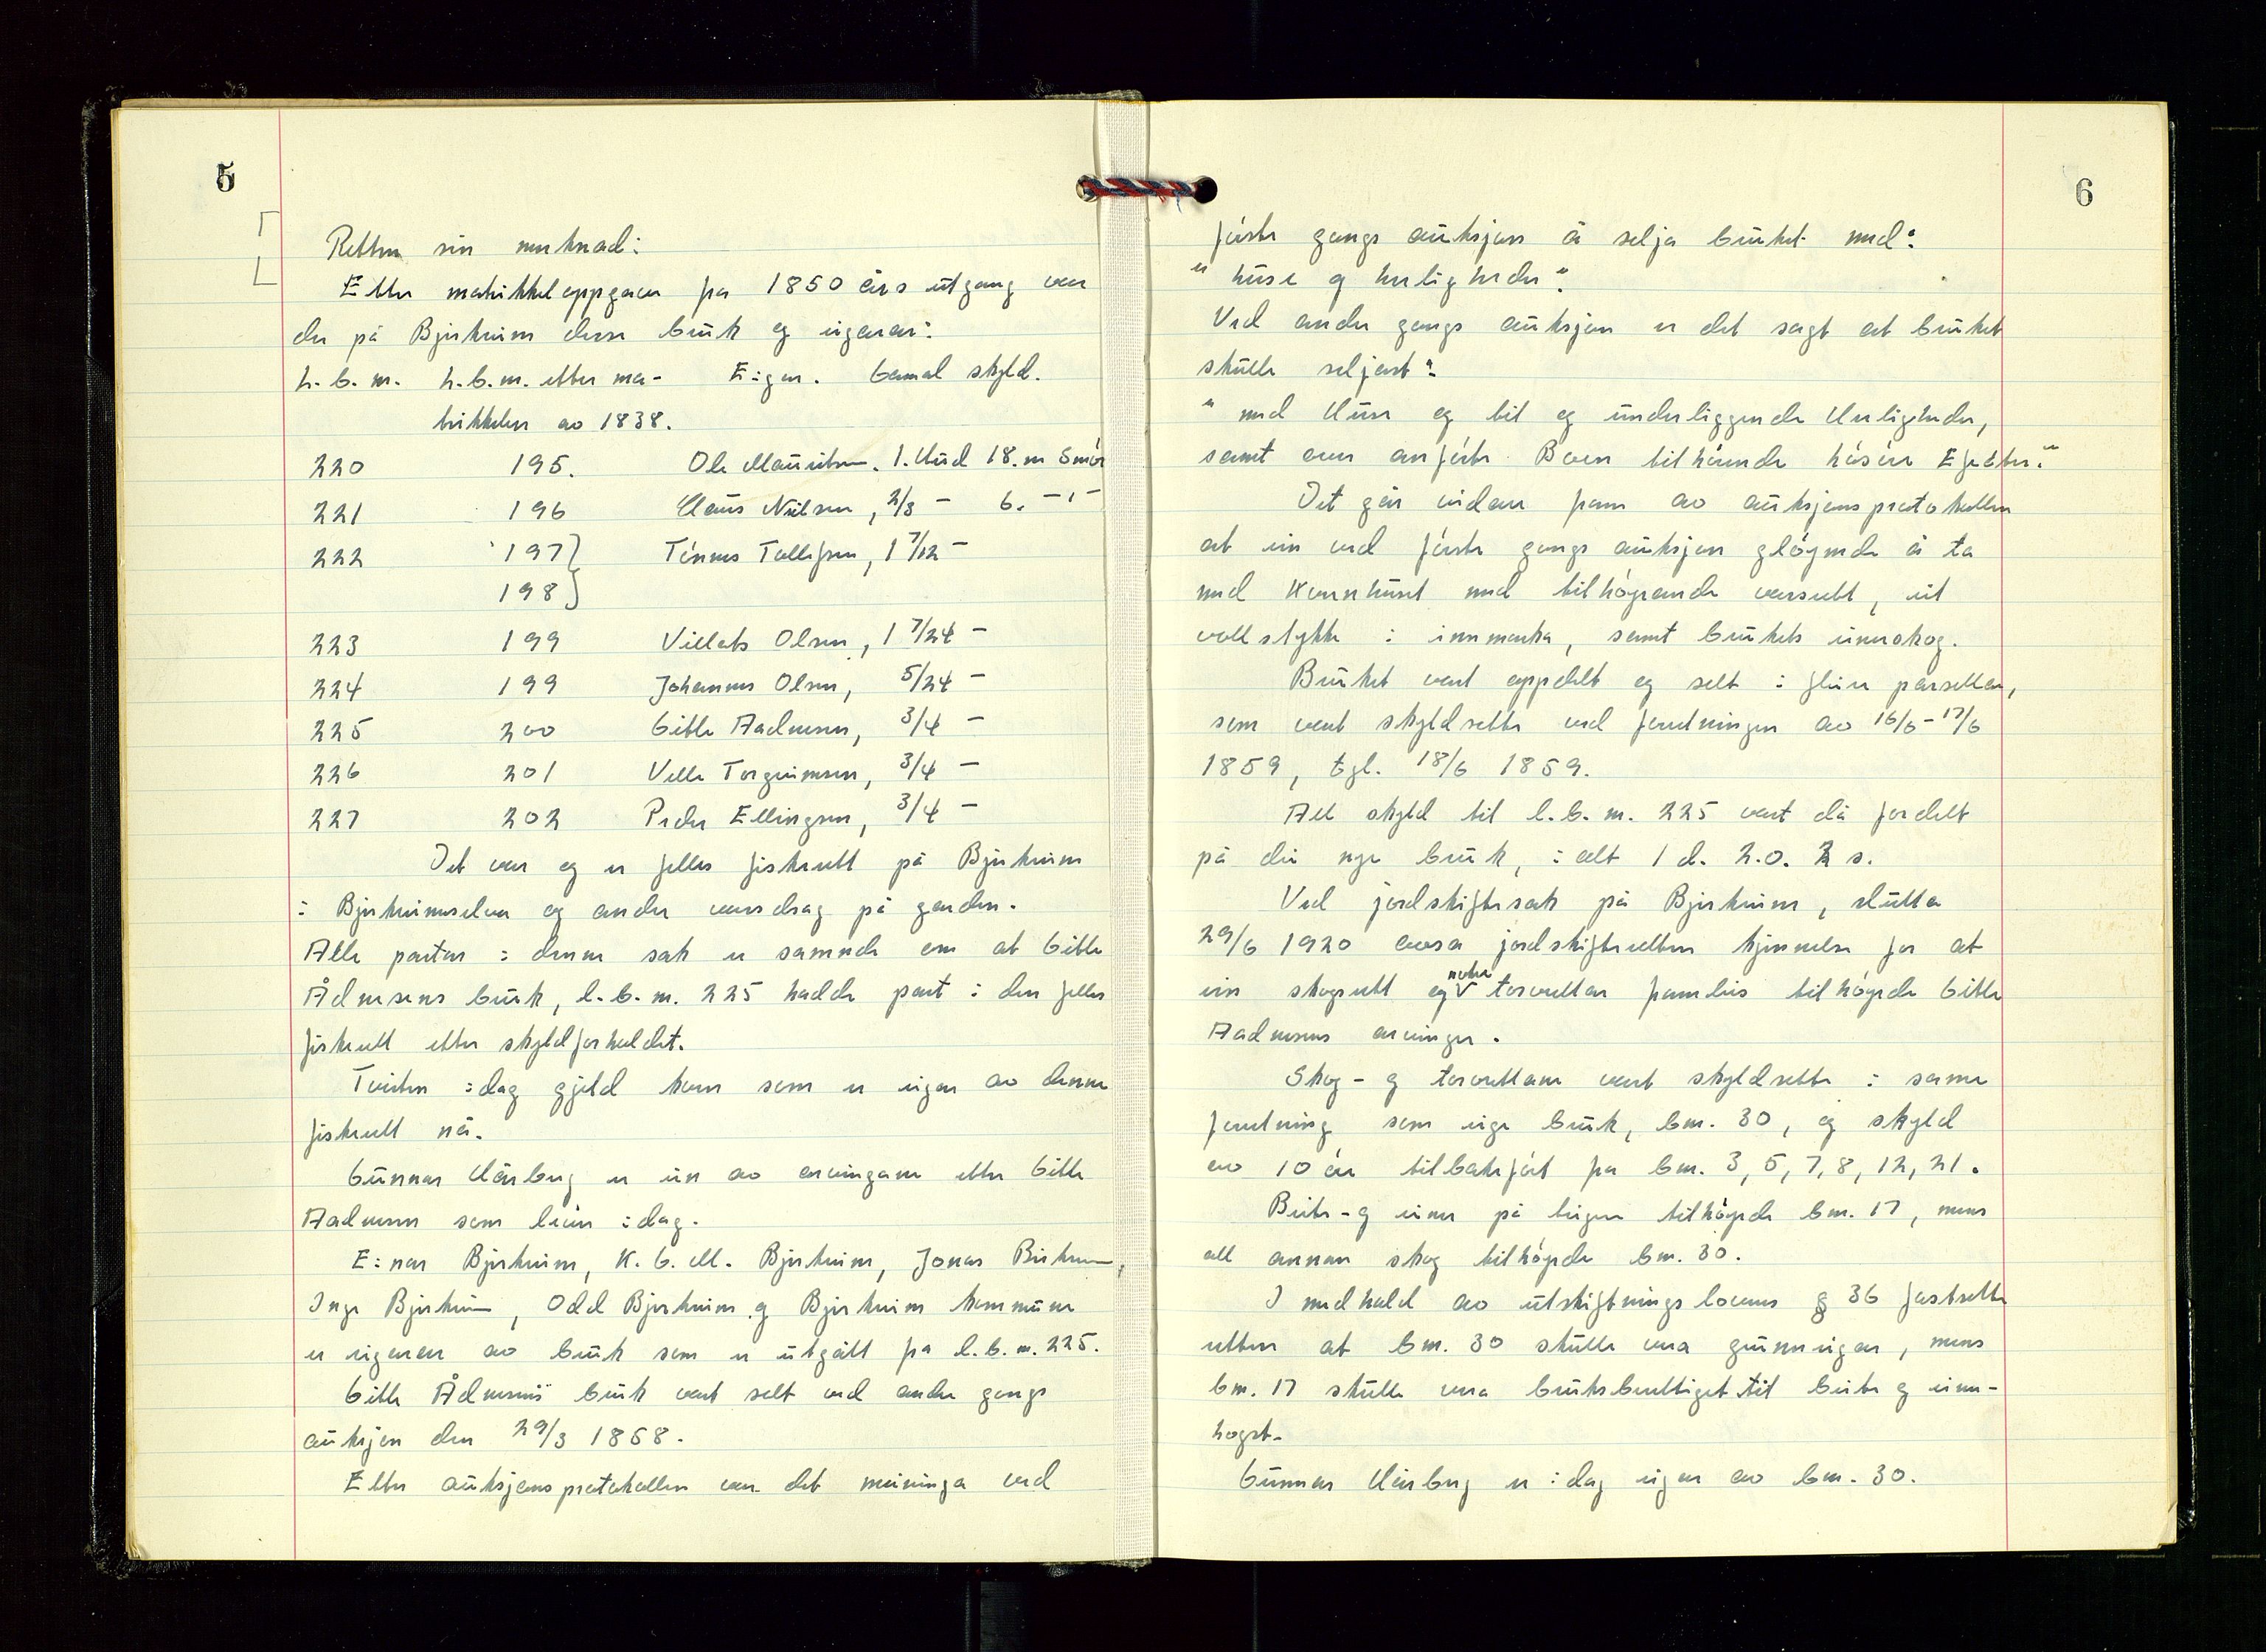 5
Retten sin merknad:
Etter matrikkeloppgaver fra 1850 års utgang var
der på Bjerkreim desse bruk og eigarar:
L.b.nr. L.b.nr. etter ma- Eigar. Gamal skyld.
trikkelen av 1838.
220 195. Ole Mauritsen. 1. Hud 18. m Smör
221 196 Claus Nilsen, 2/3 – 6. – ' –
222 197 } Tönnes Tollefsen, 1 7/12 –
198 }
223 199 Villats Olsen, 1 7/24 –
224 199 Johannes Olsen, 5/24 –
225 200 Gitle Aadnesen, 3/4 –
226 201 Velle Torgrimsen, 3/4 –
227 202 Peder Ellingsen, 3/4 –
Det var og er felles fiskerett på Bjerkreim
i Bjerkreimselva og andre vassdrag på garden.
Alle partar i denne sak er samnde om at Gitle
Ådnesens bruk, l.b.nr. 225 hadde part i den felles
fiskerett etter skyldforholdet.
Tvisten idag gjeld kven som er eigar av denne
fiskerett nå.
Gunnar Hårberg er ein av arvingane etter Gitle
Aadnesen som lever idag.
Einar Bjerkreim, K. G. M. Bjerkreim, Jonas Birkreim,
Inge Bjerkreim, Odd Bjerkreim og Bjerkreim kommune
er eigarar av bruk som er utgått fra l.b.nr. 225.
Gitle Ådnesens bruk vart selt ved andre gangs
auksjon den 29/3 1858.
Etter auksjonsprotokollen var det meininga ved
6
förste gangs auksjon å selja bruket med:
" huse og herligheder".
Ved andre gangs auksjon er det sagt at bruket
skulle seljast:
" med Huse og til og underliggende Herligheder,
samt oven anförte Boen tilhörende lösöre Efekter."
Det går vidare fram av auksjonsprotokollen
at ein ved förste gangs auksjon glöymde å ta
med Kvernhuset med tilhöyrande vassrett, eit
vollstykke i innmarka, samt brukets einerskog.
Bruket vart oppdelt og selt i fleire parseller,
som vart skyldsette ved forretningen av 16/6 – 17/6
1859, tgl. 18/6 1859.
All skyld til l.b.nr. 225 vart då fordelt
på dei nye bruk, i alt 1 d. 2. o. 2 s.
Ved jordskiftesak på Bjerkreim, slutta
29/6 1920 avsa jordskifteretten kjennelse for at
ein skogrett og nokre torvretter framleis tilhöyrde Gitle
Aadnesens arvinger.
Skog- og torvrettane vart skyldsette i same
forretning som eige bruk, bnr. 30, og skyld
av 10 öre tilbakefört fra bnr. 3, 5, 7, 8, 12, 21.
Beite- og einer på teigen tilhöyrde bnr. 17, mens
all annan skog tilhöyrde bnr. 30.
I medhald av utskiftningslovens § 36 fastsette
retten at bnr. 30 skulle vera grunneigar, mens
bnr. 17 skulle vera bruksberettiget til beite og einer-
hogst.
Gunnar Hårberg er idag eigar av bnr. 30.